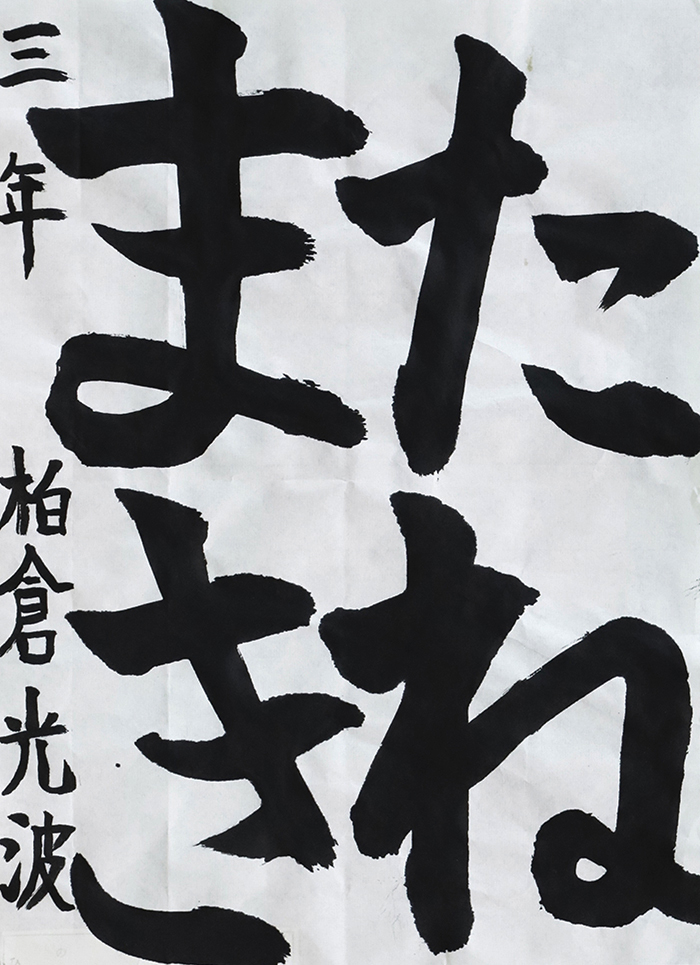 たね
まき
三年 柏倉光波